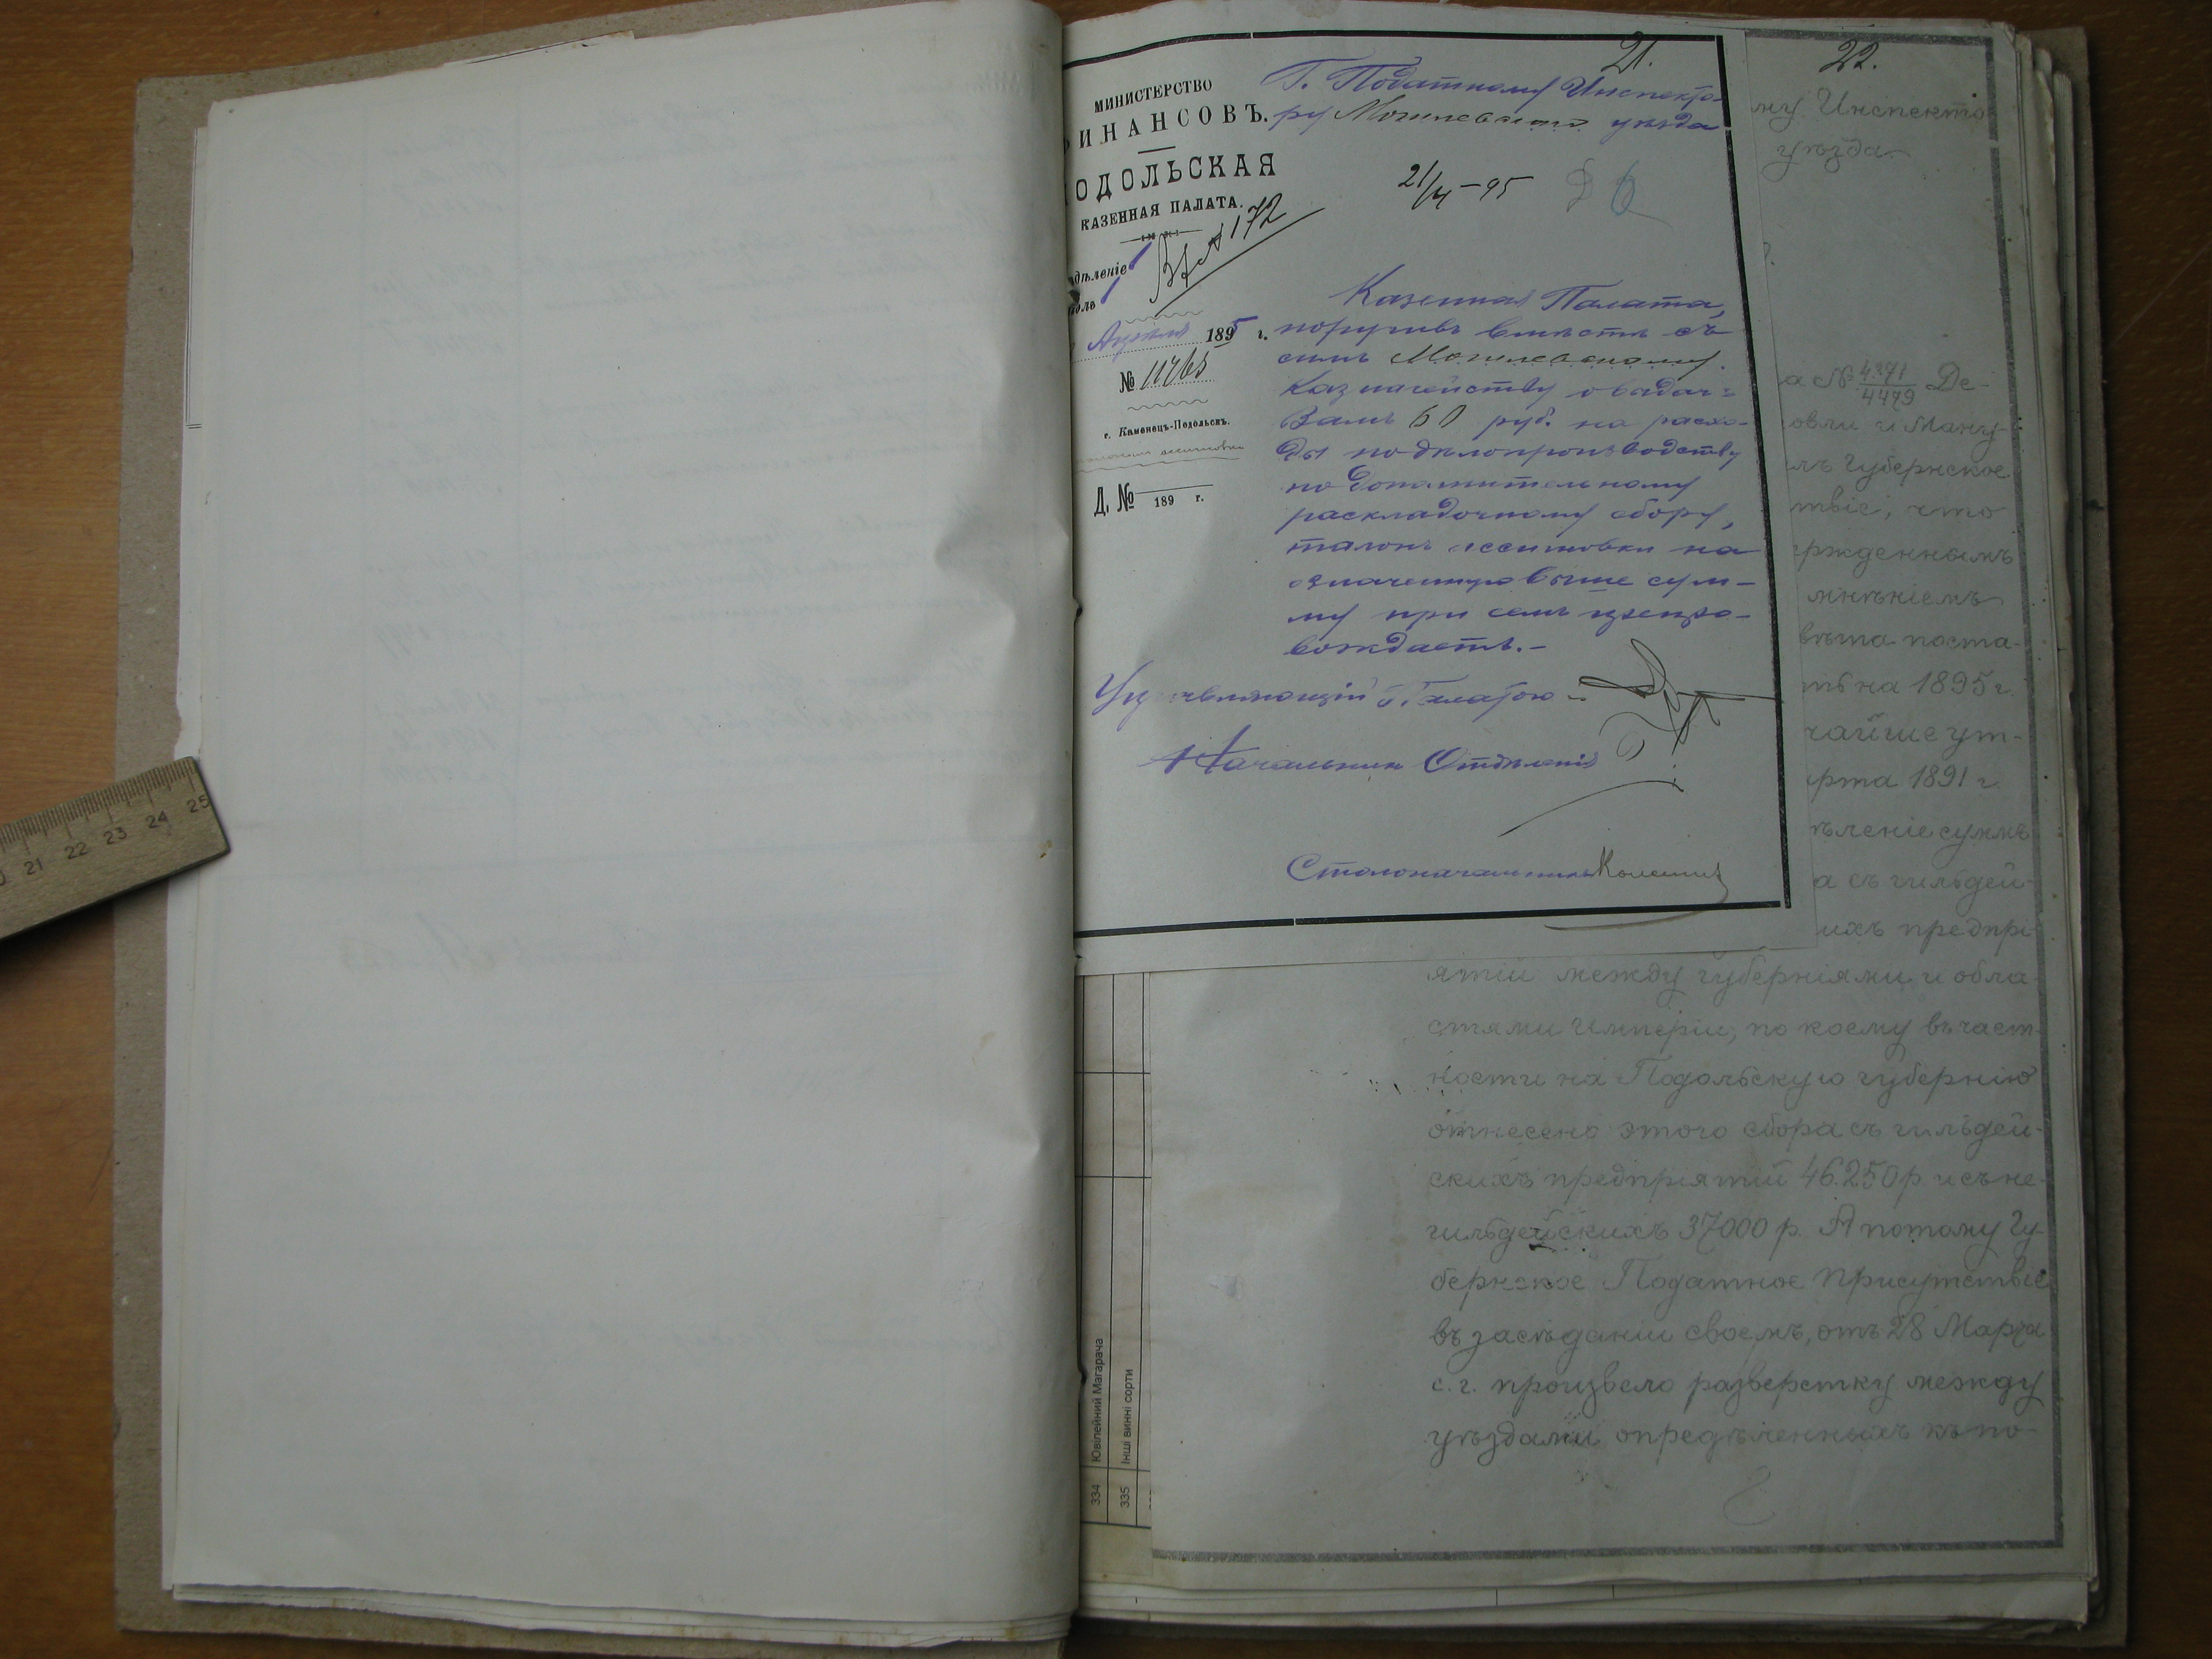 21.
МИНИСТЕРСТВО
ФИНАНСОВЪ.
ПОДОЛЬСКАЯ
КАЗЕННАЯ ПАЛАТА.
дѣленіе 1
толъ 1
Апрѣля 1895 г.
№ 11765
г. Каменецъ-Подольскъ.
Д. № 189 г.
172
Г. Податному Инспекто-
ру Могилевскаго уѣзда
21/IV-95
6
Казенная Палата,
поручивъ вмѣстѣ съ
симъ Могилевскому
Казначейству о выдач
Вамъ 60 руб. на расхо-
ды по дѣлопроизводству
по дополнительному
раскладочному сбору,
талонъ ассигновки на
означенную выше сум-
му при семъ препро-
вождаетъ.-
Управляющій Палатою
Начальник Отдѣленія
Столоначальникъ
22.
му Инспекто
уѣзда
а № 4371/4479 Де-
овли и Ману-
лъ Губернское
твіе, что
ржденнымъ
мнѣніемъ
вѣта поста-
на 1895 г.
чайше ут-
рта 1891 г.
ѣленіе суммъ
а съ гильдей-
ихъ предпрі-
ятій между губерніями и обла-
стями Имперіи, по коему въ част-
ности на Подольскую губернію
отнесено этого сбора съ гильдей-
скихъ предпріятій 46.250 р. и съ не-
гильдейскихъ 37000 р. А потому Гу-
бернское Податное Присутствіе
въ засѣданіи своемъ, отъ 28 Марта
с. г. произвело разверстку между
уѣздами опредѣленныхъ къ по-
334 Ювілейний Магарача
335 Інші винні сорти
21 22 23 24 25